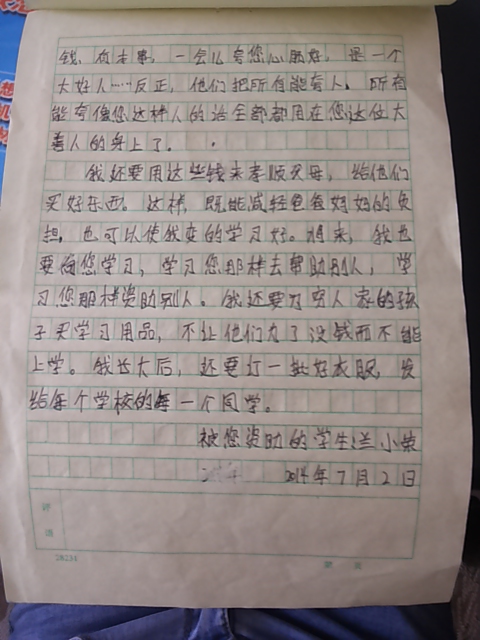 钱、有本事，一会儿夸您心肠好，是一个
大好人……反正，他们把所有能夸人、所有
能夸像您这样人的话全部都用在您这位大
善人的身上了。
我还要用这些钱来孝顺父母，给他们
买好东西。这样，既能减轻爸爸妈妈的负
担，也可以使我变的学习好。将来，我也
要向您学习，学习您那样去帮助别人，学
习您那样资助别人。我还要为穷人家的孩
子买学习用品，不让他们为了没钱而不能
上学。我长大后，还要订一批好衣服，发
给每个学校的每一个同学。
被您资助的学生：兰小荣
2014年7月2日
评
语
28231